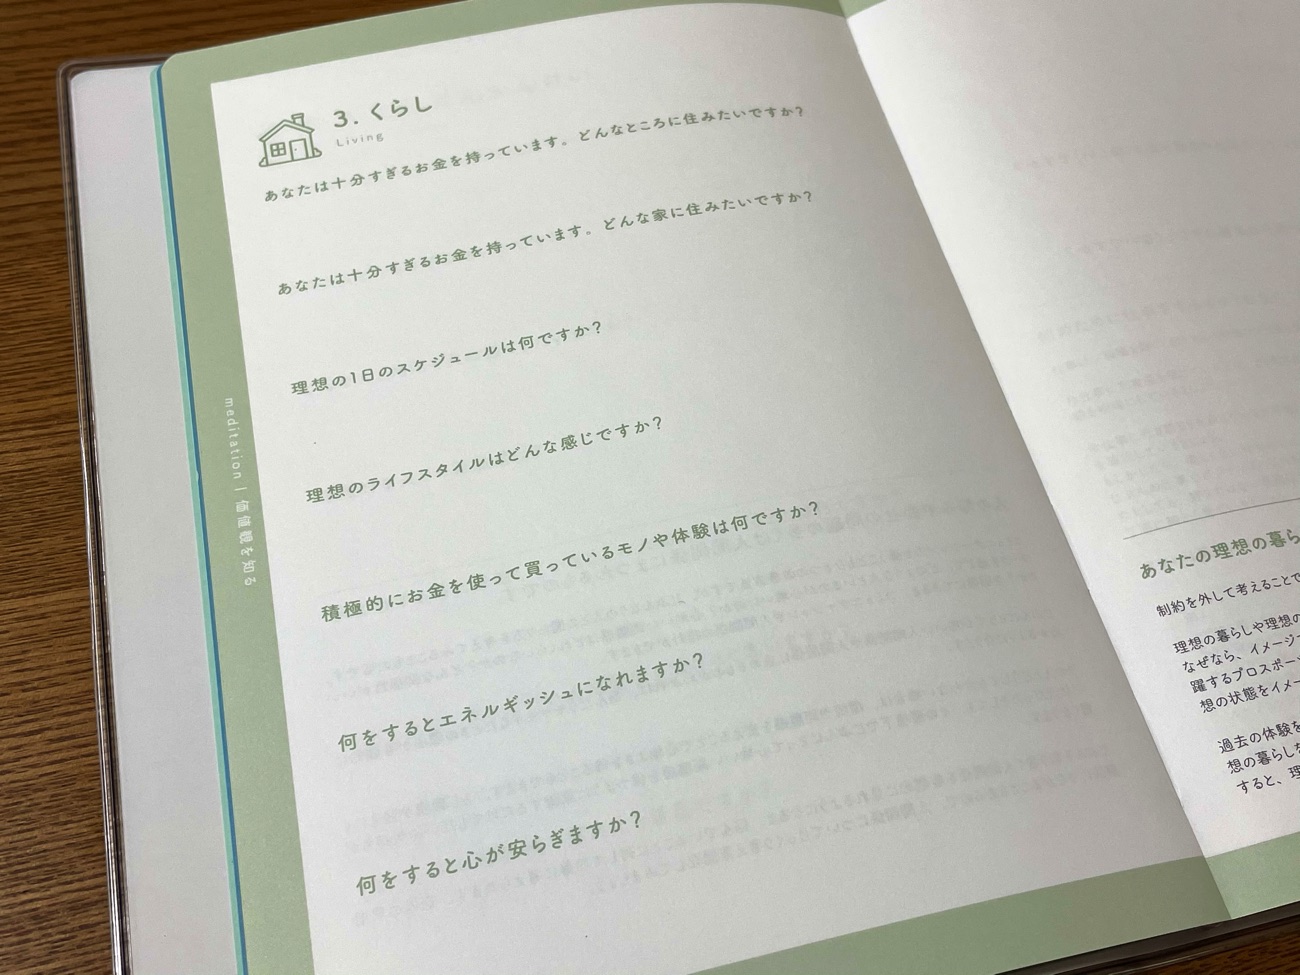 3. くらし
Living
あなたは十分すぎるお金を持っています。どんなところに住みたいですか?
あなたは十分すぎるお金を持っています。どんな家に住みたいですか?
理想の1日のスケジュールは何ですか?
理想のライフスタイルはどんな感じですか?
積極的にお金を使って買っているモノや体験は何ですか?
何をするとエネルギッシュになれますか?
何をすると心が安らぎますか?
meditation | 価値観を知る
あなたの理想の暮ら
制約を外して考えることで
理想の暮らしや理想の
なぜなら、イメージ
躍するプロスポー
想の状態をイメー
過去の体験を
想の暮らしを
すると、理